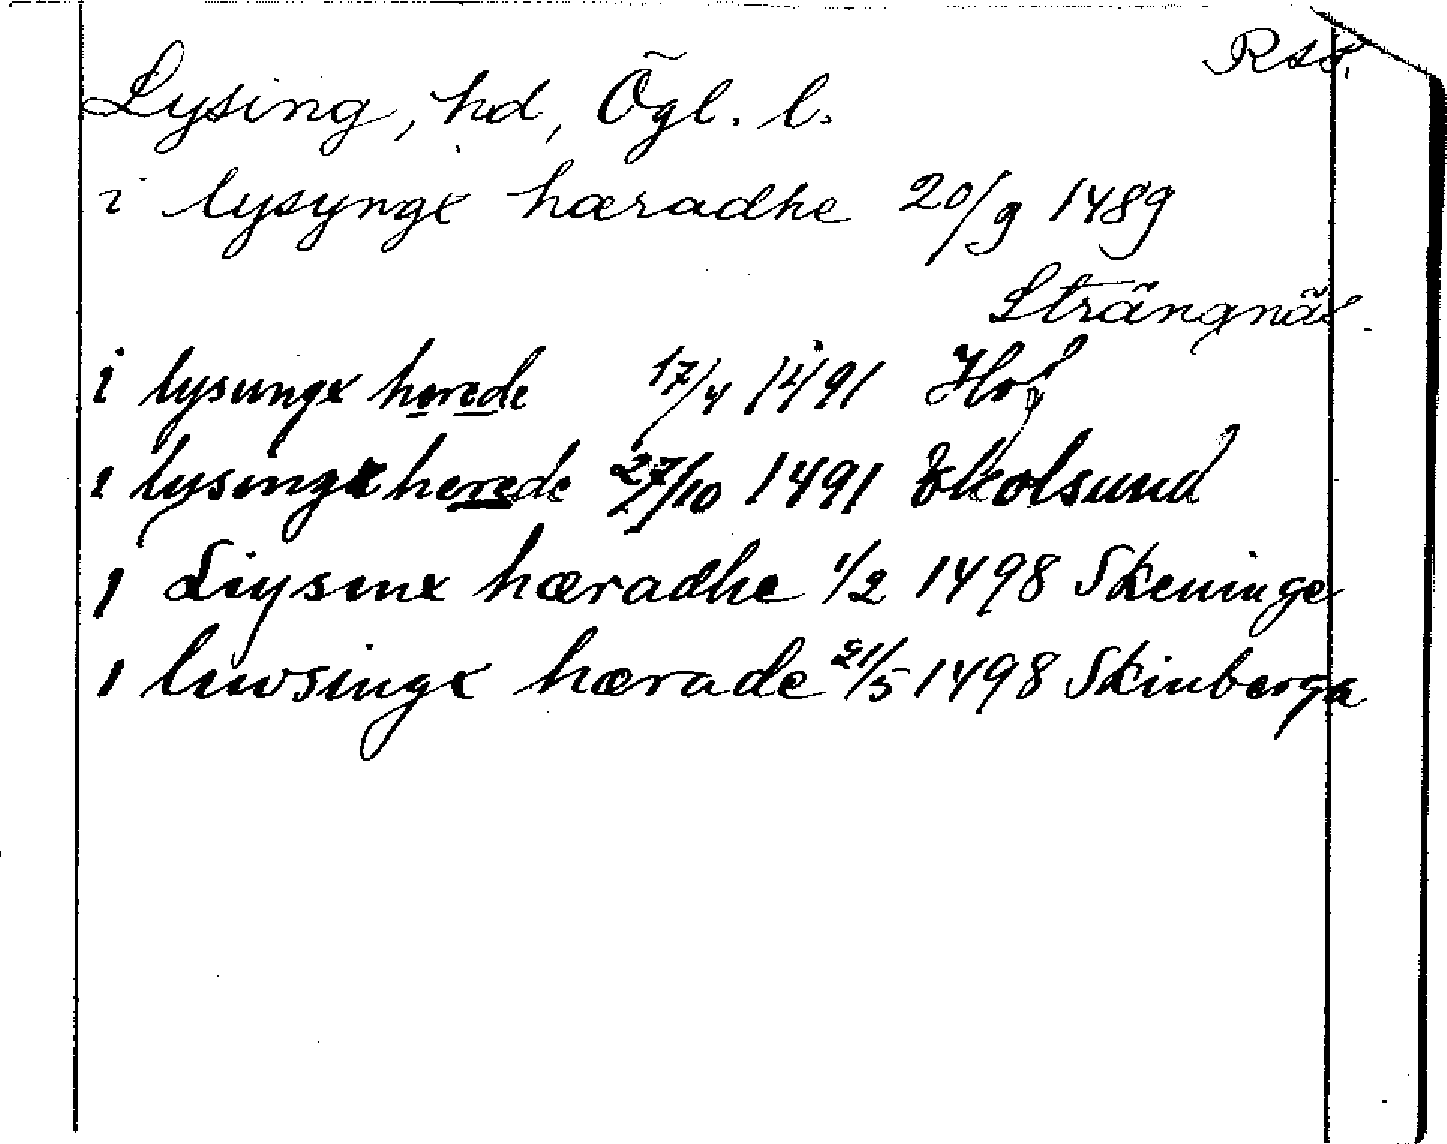 RAS.
Lysing, hd, Ögl. l.
i lysyngx hæradhe 20/9 1489
Strängnäs.
i lysungx herede 17/4 1491 Hof
i lysingx herede 27/10 1491 Ekolsund
j Liysinx hæradhe 1/2 1498 Skeninge
i luwsingx hærade 21/5 1498 Skinberga